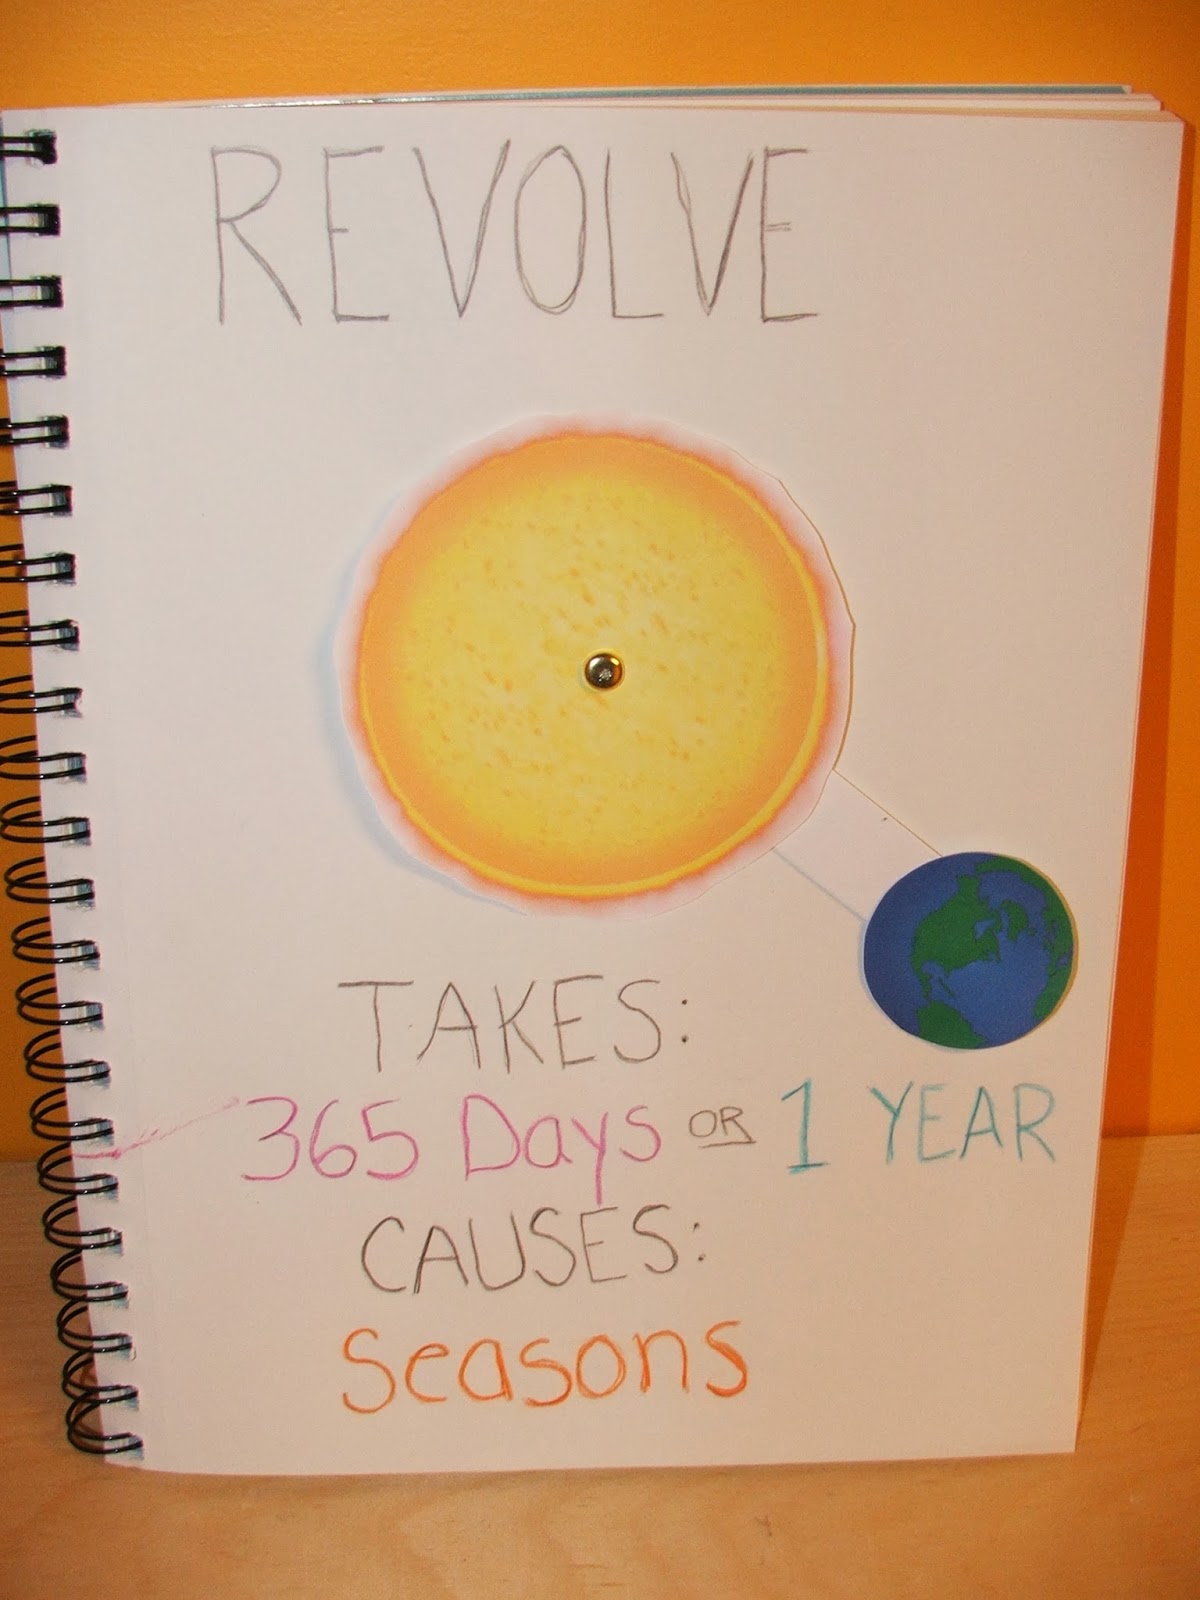 REVOLVE
TAKES:
365 Days OR 1 YEAR
CAUSES:
Seasons